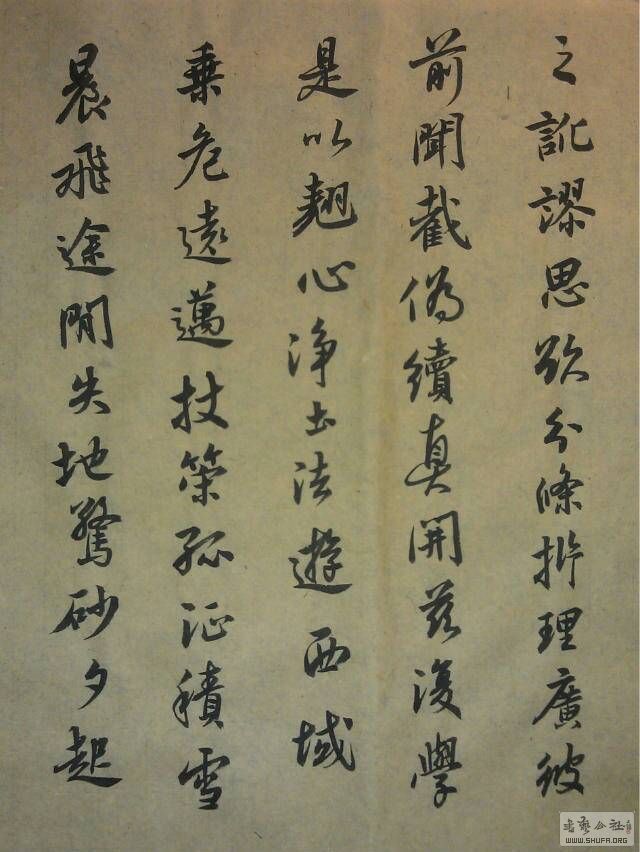 之訛謬思欲分條析理廣彼
前聞截偽續真開茲後學
是以翹心净土法遊西域
乘危遠邁杖策孤征積雪
晨飛途閒失地驚砂夕起
書藝公社
WWW.SHUFA.ORG